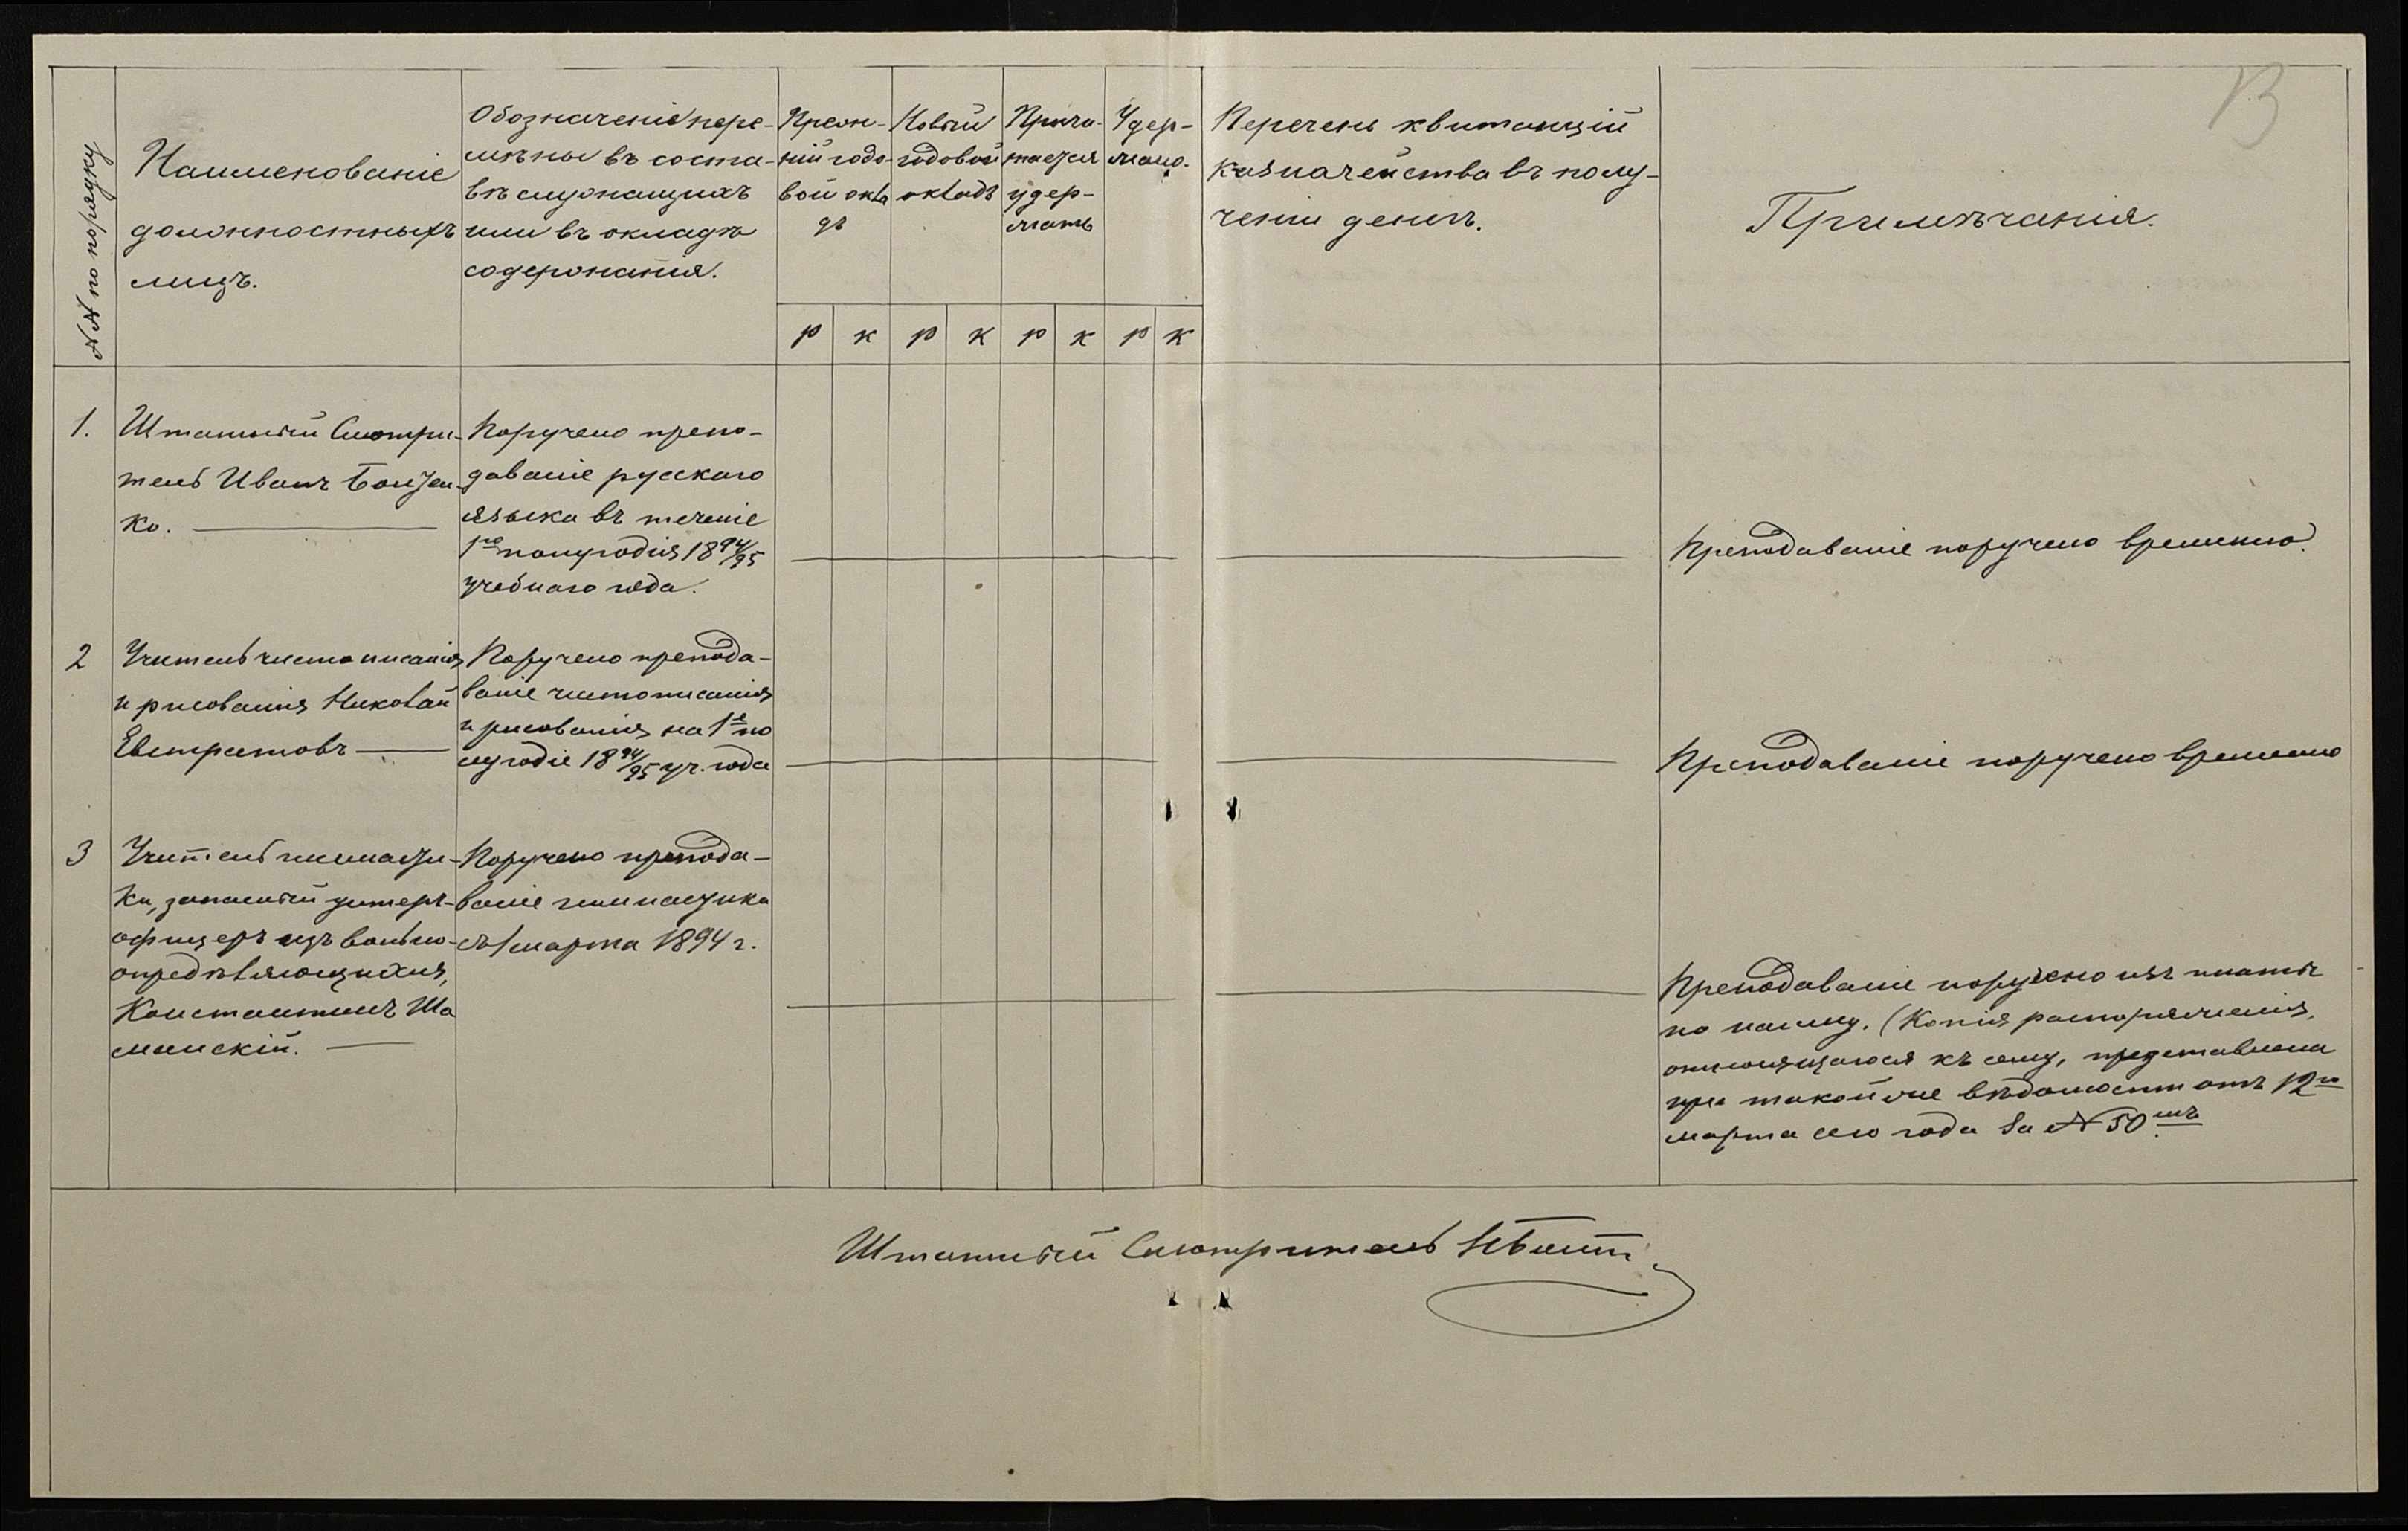 13
№№ по порядку
Наименованіе
должностныхъ
лицъ.
Обозначеніе пере-
мѣны въ соста-
вѣ служащихъ
или въ окладѣ
содержанія.
Преж-
ній годо-
вой окла
дъ
Новый
годовой
окладъ
Прича-
тается
удер-
жать
Удер-
жано.
Перечень квитанцій
казначейства въ полу-
ченіи денегъ.
Примѣчанія.
р к р к р к р к
1.
Штатный Смотри-
тель Иванъ
ко.
Поручено препо-
даваніе русскаго
языка въ теченіе
1го полугодія 1894/95
учебнаго года.
Преподаваніе поручено временно.
2
Учитель чистописанія
и рисованія Николай
Евстратовъ
Поручено препода-
ваніе чистописанія
и рисованія на 1е по
лугодіе 1894/95 уч. года
Преподаваніе поручено временно
3
Учитель гимнасти-
ки, запасный унтеръ-
офицеръ изъ вольно-
опредѣляющихся,
Константинъ Ша
манскій.
Поручено препода-
ваніе гимнастики
съ 1 марта 1894 г.
Преподаваніе поручено изъ платы
по найму. (Копія распоряженія,
относящагося къ сему, представлена
при такой же вѣдомости отъ 12го
марта сего года за № 50мъ.
Штатный Смотритель